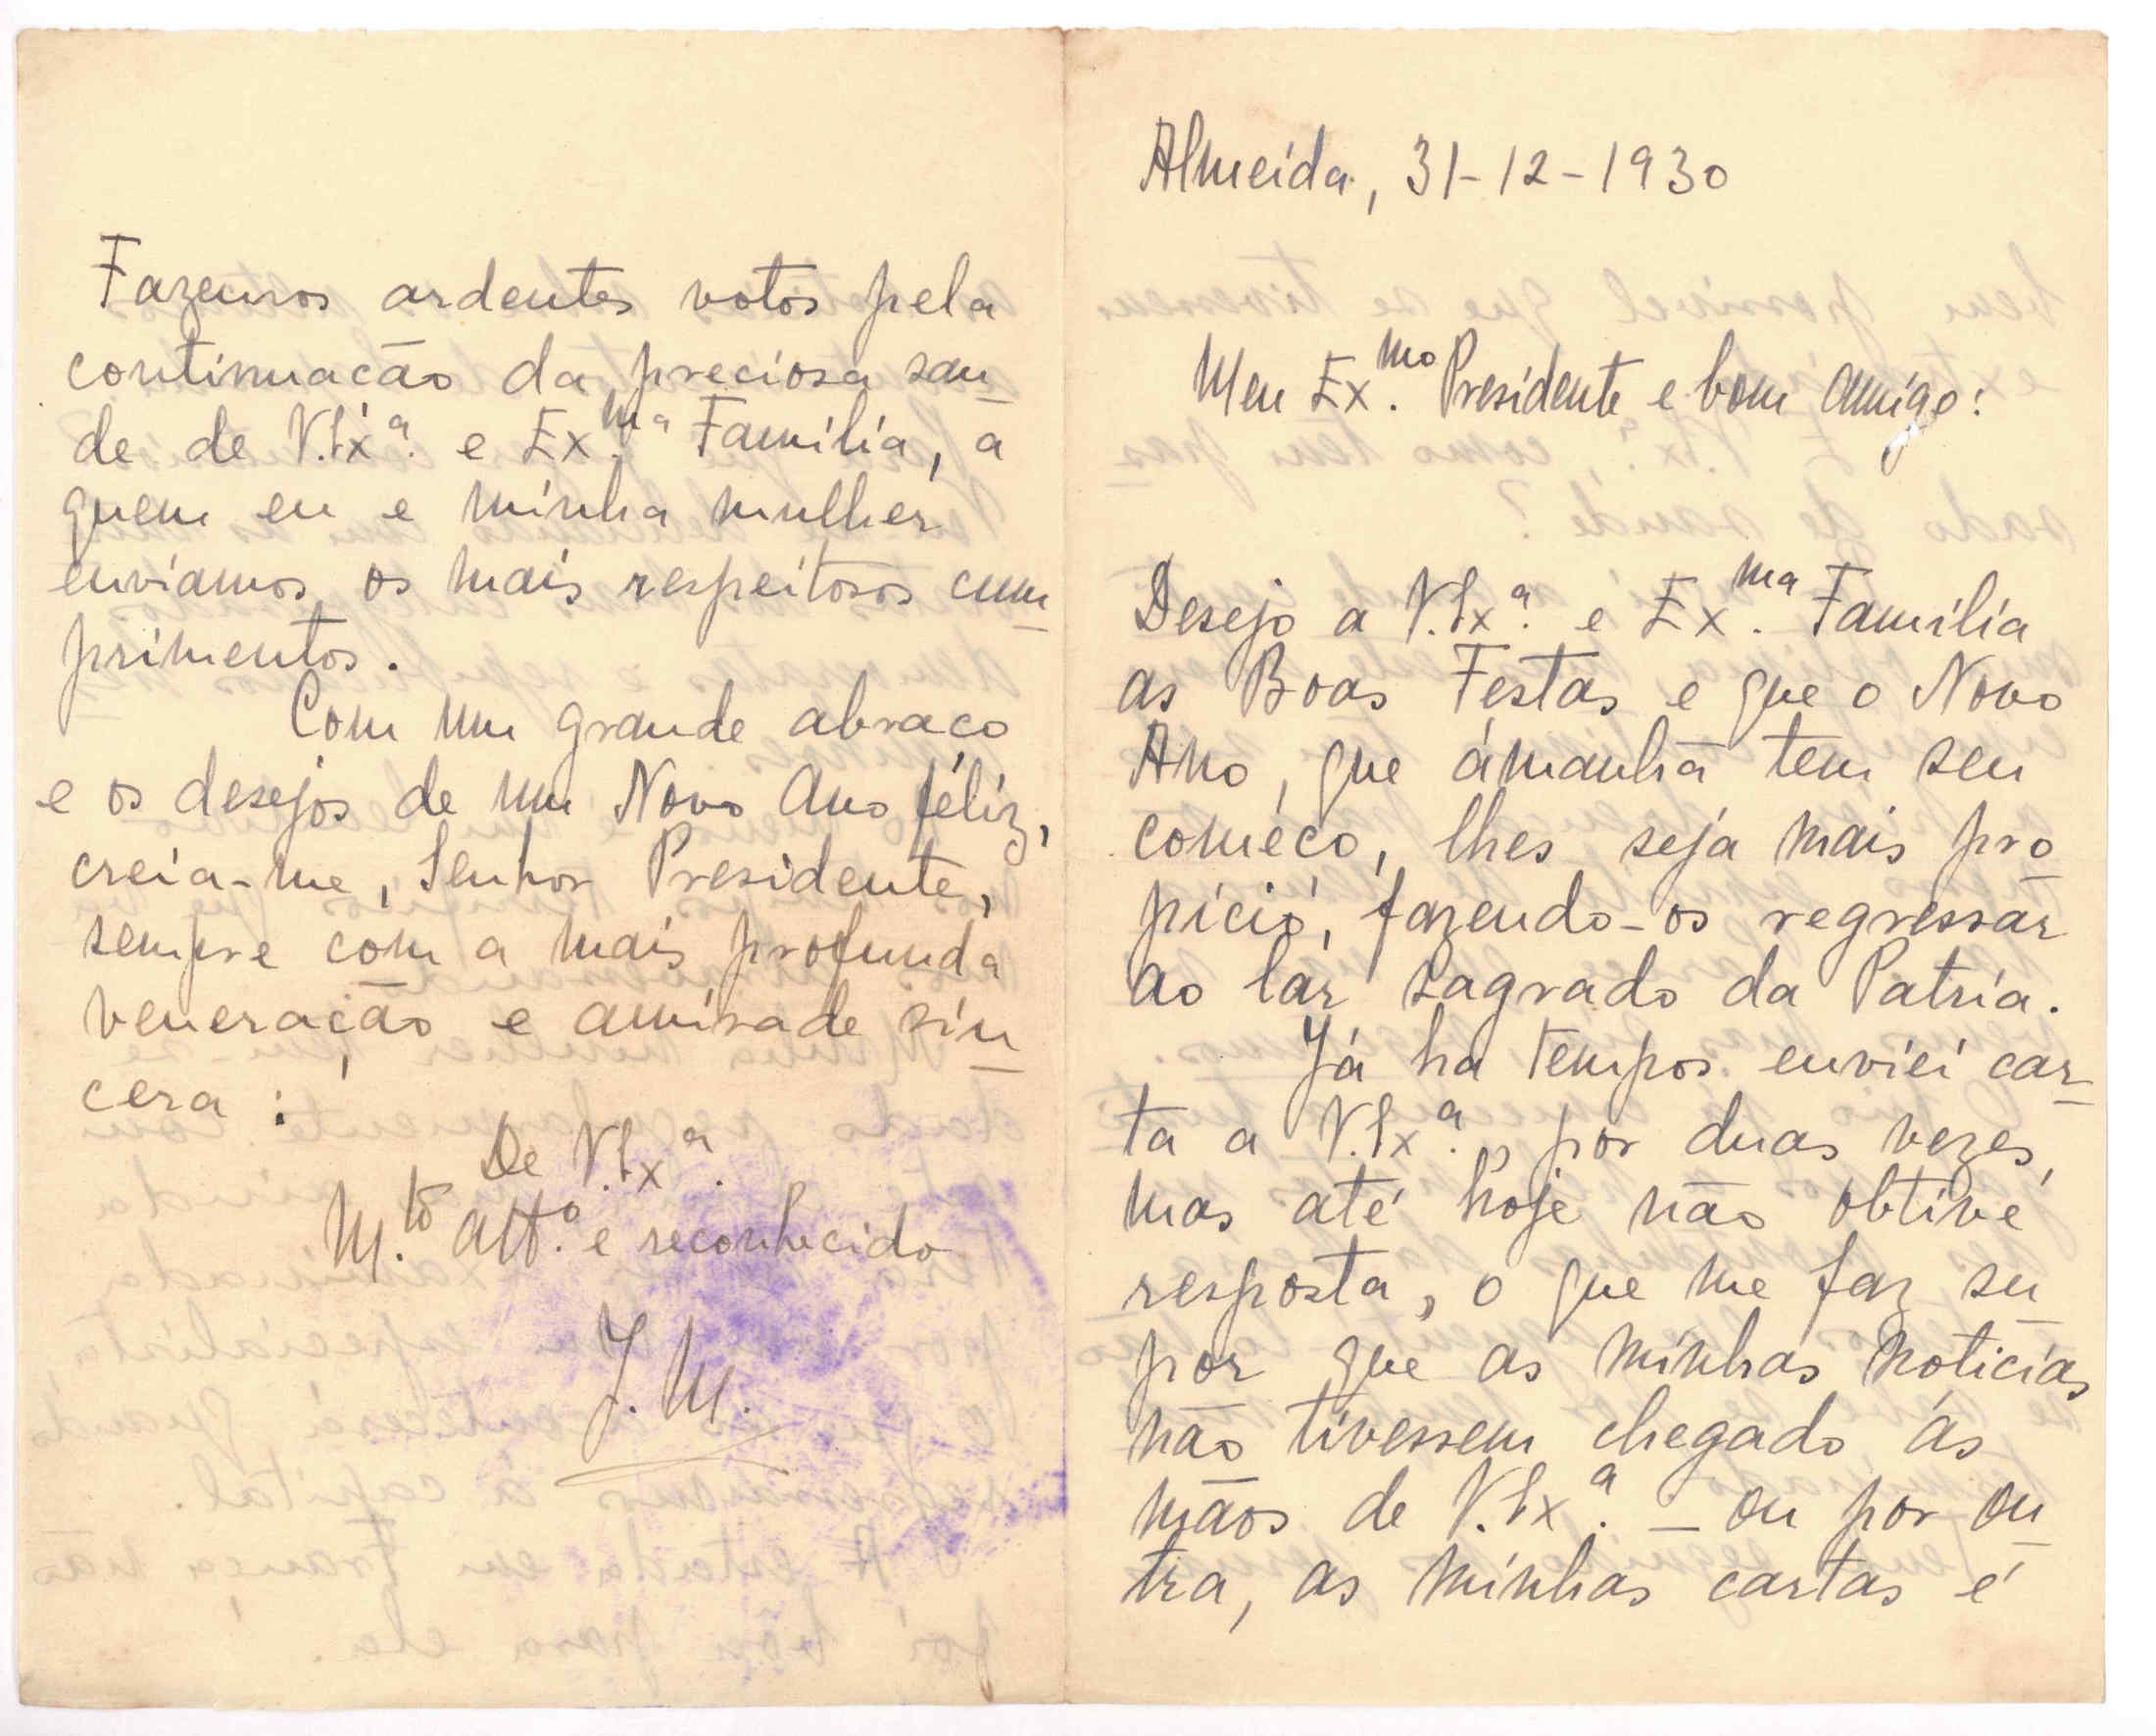 Almeida, 31-12-1930
Meu Ex.mo Presidente e bom amigo:
Desejo a V.Exª. e Ex.ma Familia
as Boas Festas e que o Novo
Ano, que ámanhã tem seu
coméco, lhes seja mais pro
picio, fazendo-os regressar
ao lár sagrado da Patria.
Já ha tempos enviei car
ta a V.Exª., por duas vezes,
mas até hoje não obtive
resposta, o que me faz su
por que as minhas noticias
não tivessem chegado ás
mãos de V.Exª. — ou por ou
tra, as minhas cartas é
Fazemos ardentes votos pela
continuacão da preciosa sau
de de V.Exª. e Ex.ma Familia, a
quem eu e minha mulher
enviamos os mais respeitosos cum
primentos.
Com um grande abraco
e os desejos de um Novo Ano féliz,
creia-me, Senhor Presidente,
sempre com a mais profunda
veneração e amisade sin
cera :
De V.Exª.
M.to Att.º e reconhecido
J. M.